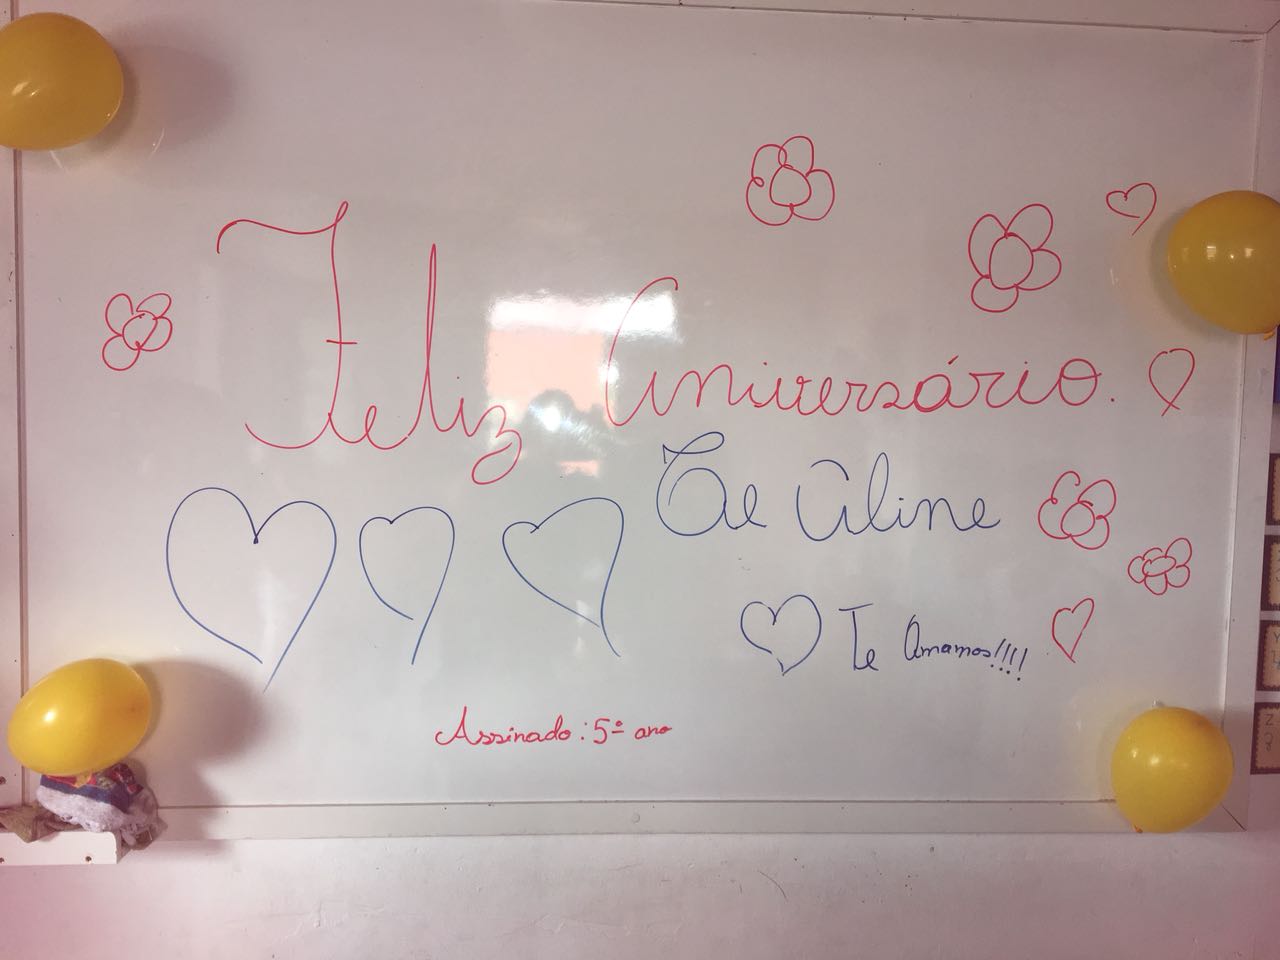 Feliz Aniversário.
Te Aline
Te Amamos!!!!
Assinado: 5º ano